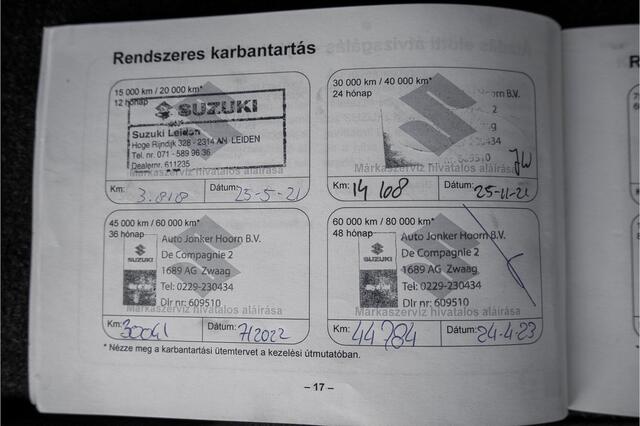 Rendszeres karbantartás
15 000 km / 20 000 km*
12 hónap
SUZUKI
Suzuki Leiden
Hoge Rijndijk 328 - 2314 AN LEIDEN
Tel. nr. 071 - 589 96 36
Dealernr. 611235
Márkaszerviz hivatalos aláírása
Km: 3.818 Dátum: 25-5-21
30 000 km / 40 000 km*
24 hónap
Hoorn B.V.
2
230434
609510
Márkaszerviz hivatalos aláírása
Km: 14 108 Dátum: 25-11-21
45 000 km / 60 000 km*
36 hónap
SUZUKI
Auto Jonker Hoorn B.V.
De Compagnie 2
1689 AG Zwaag
Tel: 0229-230434
Dlr nr: 609510
Márkaszerviz hivatalos aláírása
Km: 30041 Dátum: 7/2022
60 000 km / 80 000 km*
48 hónap
SUZUKI
Auto Jonker Hoorn B.V.
De Compagnie 2
1689 AG Zwaag
Tel: 0229-230434
Dlr nr: 609510
Márkaszerviz hivatalos aláírása
Km: 44784 Dátum: 24-4-23
* Nézze meg a karbantartási ütemtervet a kezelési útmutatóban.
– 17 –